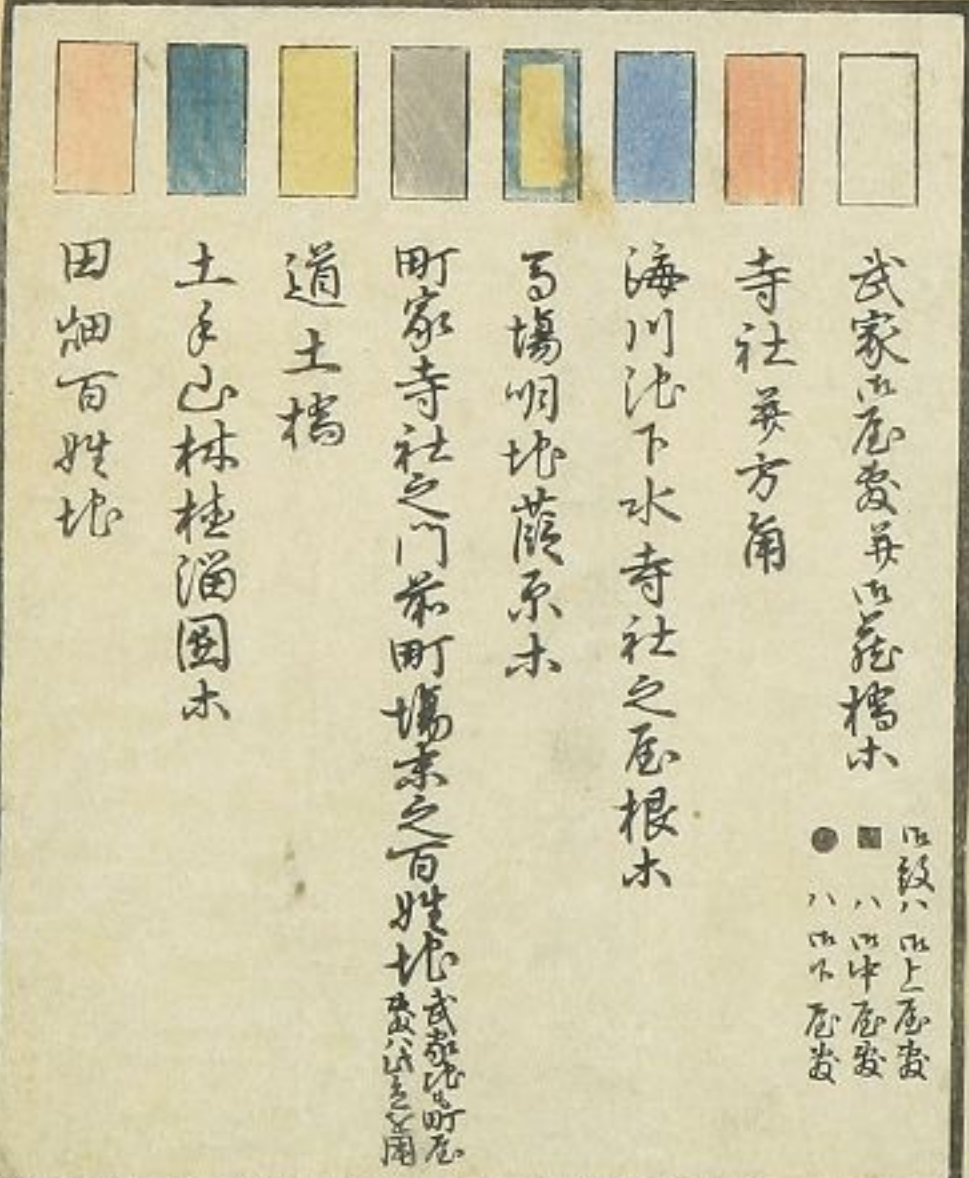 武家御屋敷并御蔵橋等
御紋ハ御上屋敷
■ハ御中屋敷
●ハ御下屋敷
寺社并方角
海川池下水寺社之屋根等
馬場明地原等
町家寺社之門前町場末之百姓地
武家地町屋
敷ハ用
道土橋
土手山林植溜園等
田畑百姓地